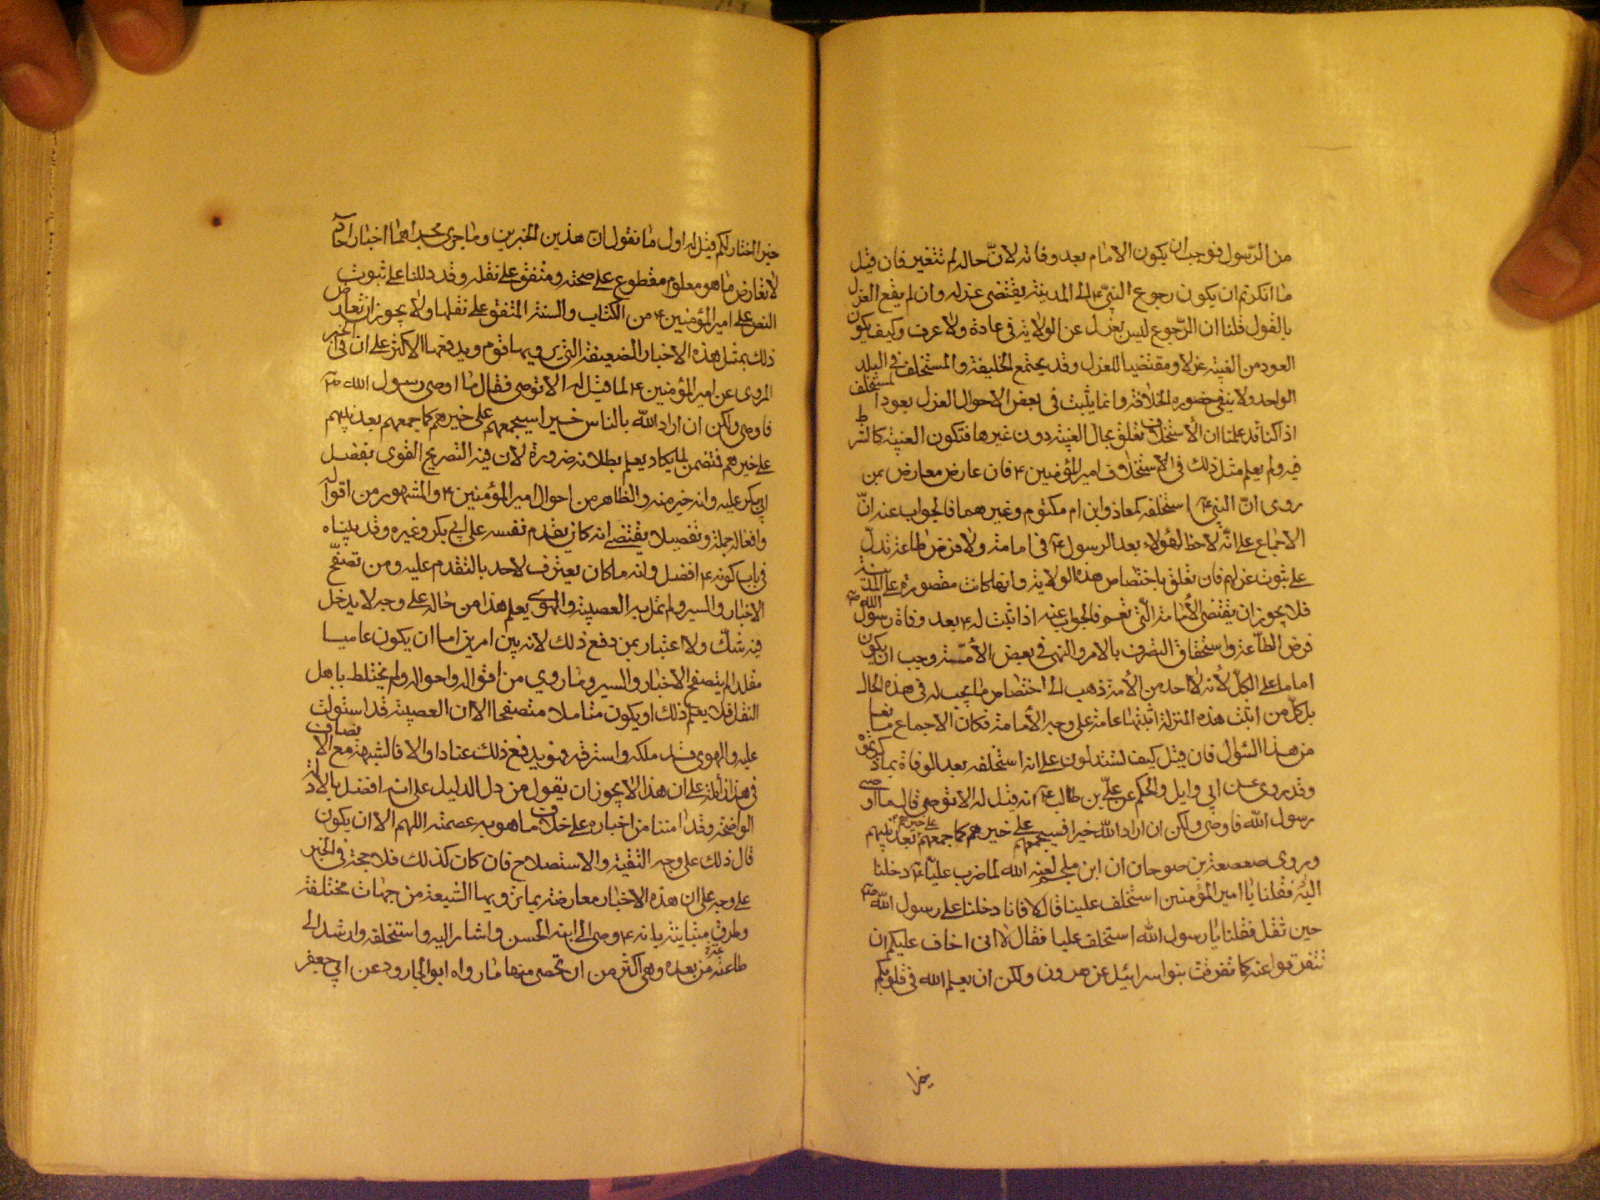 من الرّسول فوجب ان يكون الامام بعد وفاته لانّ حاله لم تتغير فان قيل
ما انكرتم ان يكون رجوع النبيّ ۴ الى المدينة يقتضى عزله وان لم يقع العزل
بالقول قلنا ان الرّجوع ليس بعزل عن الولاية فى عادة ولا عرف وكيف يكون
العود من الغيبة عزلا ومقتضيا للعزل وقد يجتمع الخليفة والمستخلف فى البلد
الواحد ولا ينفى حضوره الخلافة وانما يثبت فى بعض الاحوال العزل بعود المستخلف
اذا كنا قد علمنا ان الاستخلاف تعلق بحال الغيبة دون غيرها فتكون الغيبة كالشرط
فيه ولم يعلم مثل ذلك فى الاستخلاف امير المؤمنين ۴ فان عارض معارض بمن
روى انّ النبيّ ۴ استخلفه كمعاذ وابن ام مكتوم وغيرهما فالجواب عنه انّ
الاجماع على انّه لاحظ لهؤلاء بعد الرسول ۴ فى امامة ولا فرض طاعة تدلّ
على ثبوت عزلهم فان تعلق باختصاص هذه الولاية وانها كانت مقصورة على المدينة
فلا يجوز ان يقتضى الأمامة الّتى تعم فالجواب عنه اذا ثبت له ۴ بعد وفاة رسول الله ص
فرض الطّاعة واستحقاق التصرف بالامر والنهى فى بعض الأمّة وجب ان يكون
اماما على الكلّ لأنه لا احد من الأمة ذهب الى اختصاص ما يجب له فى هذه الحال
بل كلّ من اثبت هذه المنزلة اثبتها عامة على وجه الأمامة فكان الاجماع مانعا
من هذا السؤال فان قيل كيف تستدلون على انه استخلفه بعد الوفاة بما ذكرتموه
وقد روى عن ابي وايل والحكم عن عليّ بن طالب ۴ انه قيل له الا توصي قال ما اوصى
رسول الله فاوصى ولكن ان اراد اللّه خيرا فسيجمعهم على خيرهم كما جمعهم بعد نبيهم على خيرهم
وروى صعصعة بن صوحان ان ابن ملجم لعنه الله لما ضرب عليا ۴ دخلنا
اليه فقلنا يا امير المؤمنين استخلف علينا قال لا فانا دخلنا على رسول اللّه ص
حين ثقل فقلنا يا رسول اللّه استخلف عليا فقال لا انى اخاف عليكم ان
تتفرقوا عنه كما تفرقت بنو اسرائيل عن هرون ولكن ان يعلم الله فى قلوبكم
خيرا
خيرا اختار لكم قيل له اول ما نقول ان هذين الخبرين وما جرى مجراهما اخبار احاد
لا تعارض ما هو معلوم مقطوع على صحته ومتفق على نقله وقد دللنا على ثبوت
النص على امير المؤمنين ۴ من الكتاب والسنة المتفق على نقلها ولا يجوز ان تعارض
ذلك بمثل هذه الاخبار الضعيفة التى يرويها قوم ويدفعها الاكثر على ان فى الخبر
المروى عن امير المؤمنين ۴ لما قيل له الا توصى فقال ما اوصى رسول الله ص
فاوصى ولكن ان اراد اللّه بالناس خيرا سيجمعهم على خيرهم كما جمعهم بعد نبيهم
على خيرهم فتضمن لما يكاد يعلم بطلانه ضرورة لان فيه التصريح القوى بفضل
ابي بكر عليه وانه خير منه والظاهر من احوال امير المؤمنين ۴ والمشهور من اقواله
وافعاله جملة وتفصيلا يقتضى انه كان يقدم نفسه على ابي بكر وغيره وقد بيناه
فى باب كونه ۴ افضل وانه ما كان يعترف لاحد بالتقدم عليه ومن تصفّح
الاخبار والسير ولم تمل به العصبية والهوى يعلم هذا من حاله على وجه لا يدخل
فيه شكّ ولا اعتبار بمن دفع ذلك لانه بين امرين اما ان يكون عاميا
مقلدا لم يتصفح الاخبار والسير وما روي من اقواله واحواله ولم يختلط باهل
النقل فلا يعلم ذلك او يكون متاملا متصفحا الا ان العصبية قد استولت
عليه والهوى قد ملكه واسترقه فهو يدفع ذلك عنادا والا فالشبهة مع الانصاف
على ان هذا لا يجوز ان يقول من دل الدليل على انه افضل بالادلّة
الواضحة وقد امننا من اخباره على خلاف ما هو به عصمته اللهم الا ان يكون
قال ذلك على وجه التقية والاستصلاح فان كان كذلك فلا حجة فى الخبر
على وجه على ان هذه الاخبار معارضة بما ترويها الشيعة من جهات مختلفة
وطرق متباينة بانه ۴ وصى الى ابنه الحسن واشار اليه واستخلفه وارشد الى
طاعته من بعده وهى اكثر من ان تحصى منها ما رواه ابو الجارود عن ابي جعفر